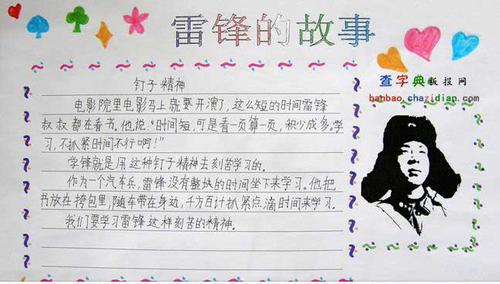 雷锋的故事
查字典 板报网
banbao.chazidian.com
钉子精神
电影院里电影马上就要开演了,这么短的时间雷锋
叔叔都在看书。他说:"时间短,可是看一页算一页,积少成多。学
习,不抓紧时间不行啊!"
学锋就是用这种钉子精神去刻苦学习的。
作为一个汽车兵,雷锋没有整块的时间坐下来学习。他把
书放在挎包里,随车带在身边,千方百计抓紧点滴时间来学习。
我们要学习雷锋这样刻苦的精神。